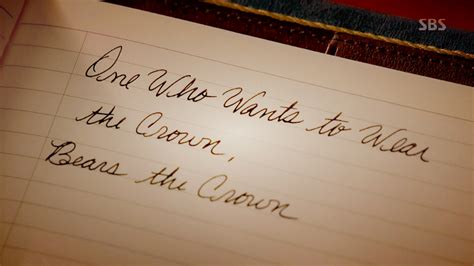 SBS
One Who Wants to Wear
the Crown,
Bears the Crown